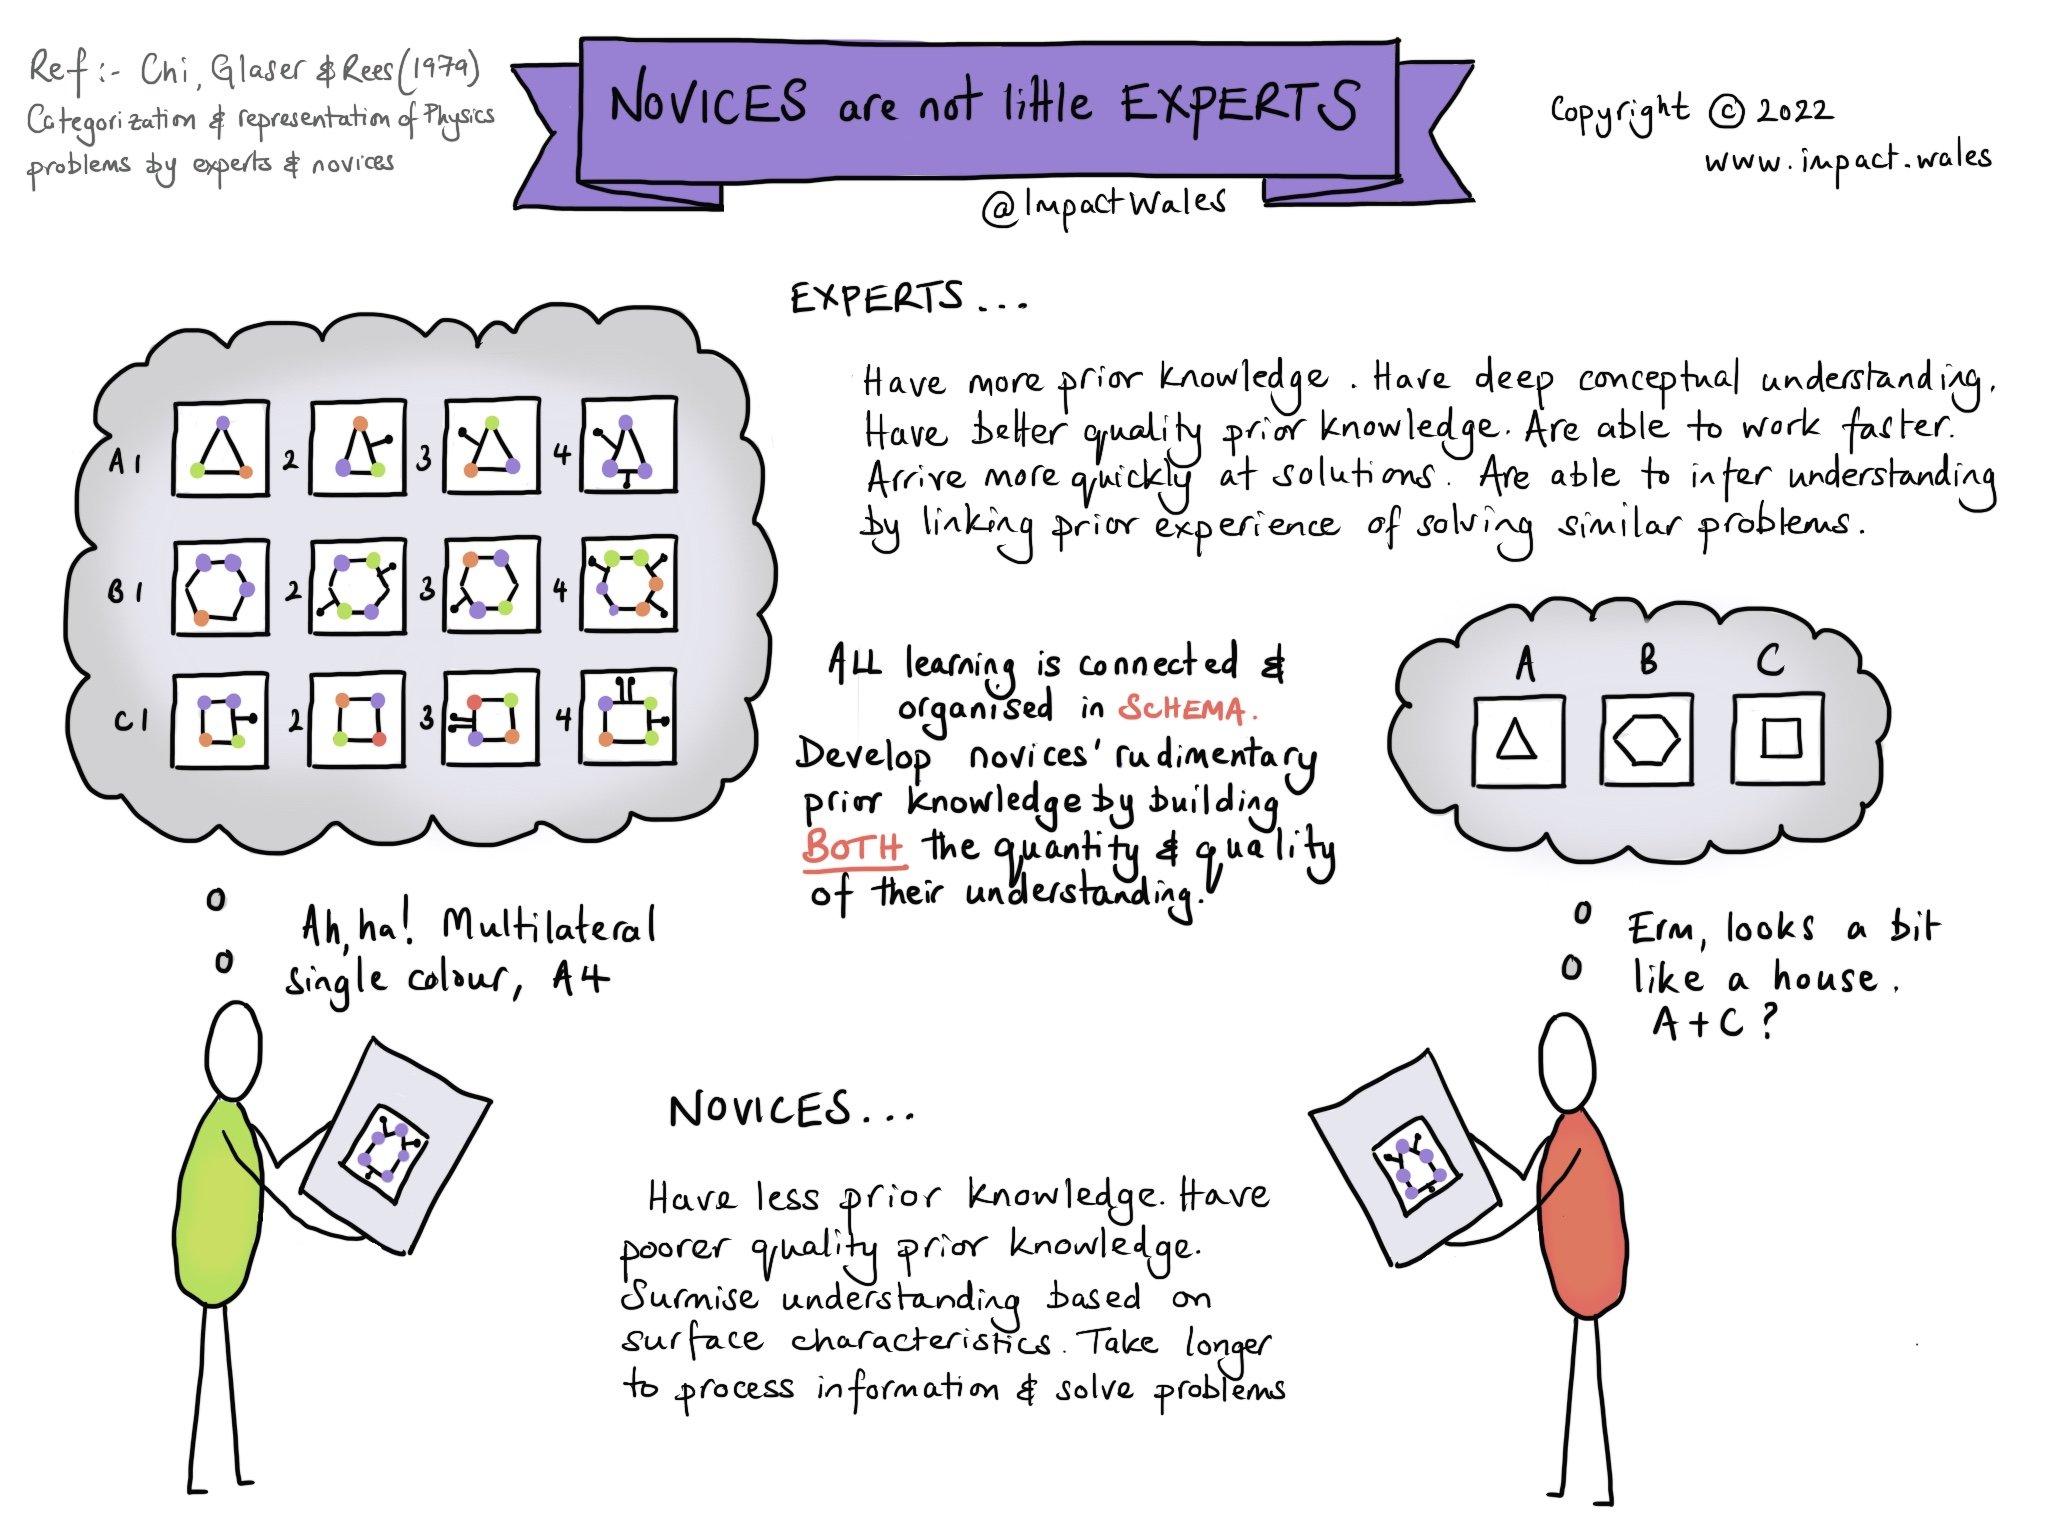 Ref:- Chi, Glaser & Rees (1979)
Categorization & representation of Physics
problems by experts & novices
NOVICES are not little EXPERTS
@ImpactWales
Copyright © 2022
www.impact.wales
EXPERTS...
Have more prior knowledge. Have deep conceptual understanding.
Have better quality prior knowledge. Are able to work faster.
Arrive more quickly at solutions. Are able to infer understanding
by linking prior experience of solving similar problems.
A1 2 3 4
B1 2 3 4
C1 2 3 4
ALL learning is connected &
organised in SCHEMA.
Develop novices' rudimentary
prior knowledge by building
BOTH the quantity & quality
of their understanding.
A B C
Ah, ha! Multilateral
single colour, A4
Erm, looks a bit
like a house.
A+C?
NOVICES...
Have less prior knowledge. Have
poorer quality prior knowledge.
Surmise understanding based on
surface characteristics. Take longer
to process information & solve problems